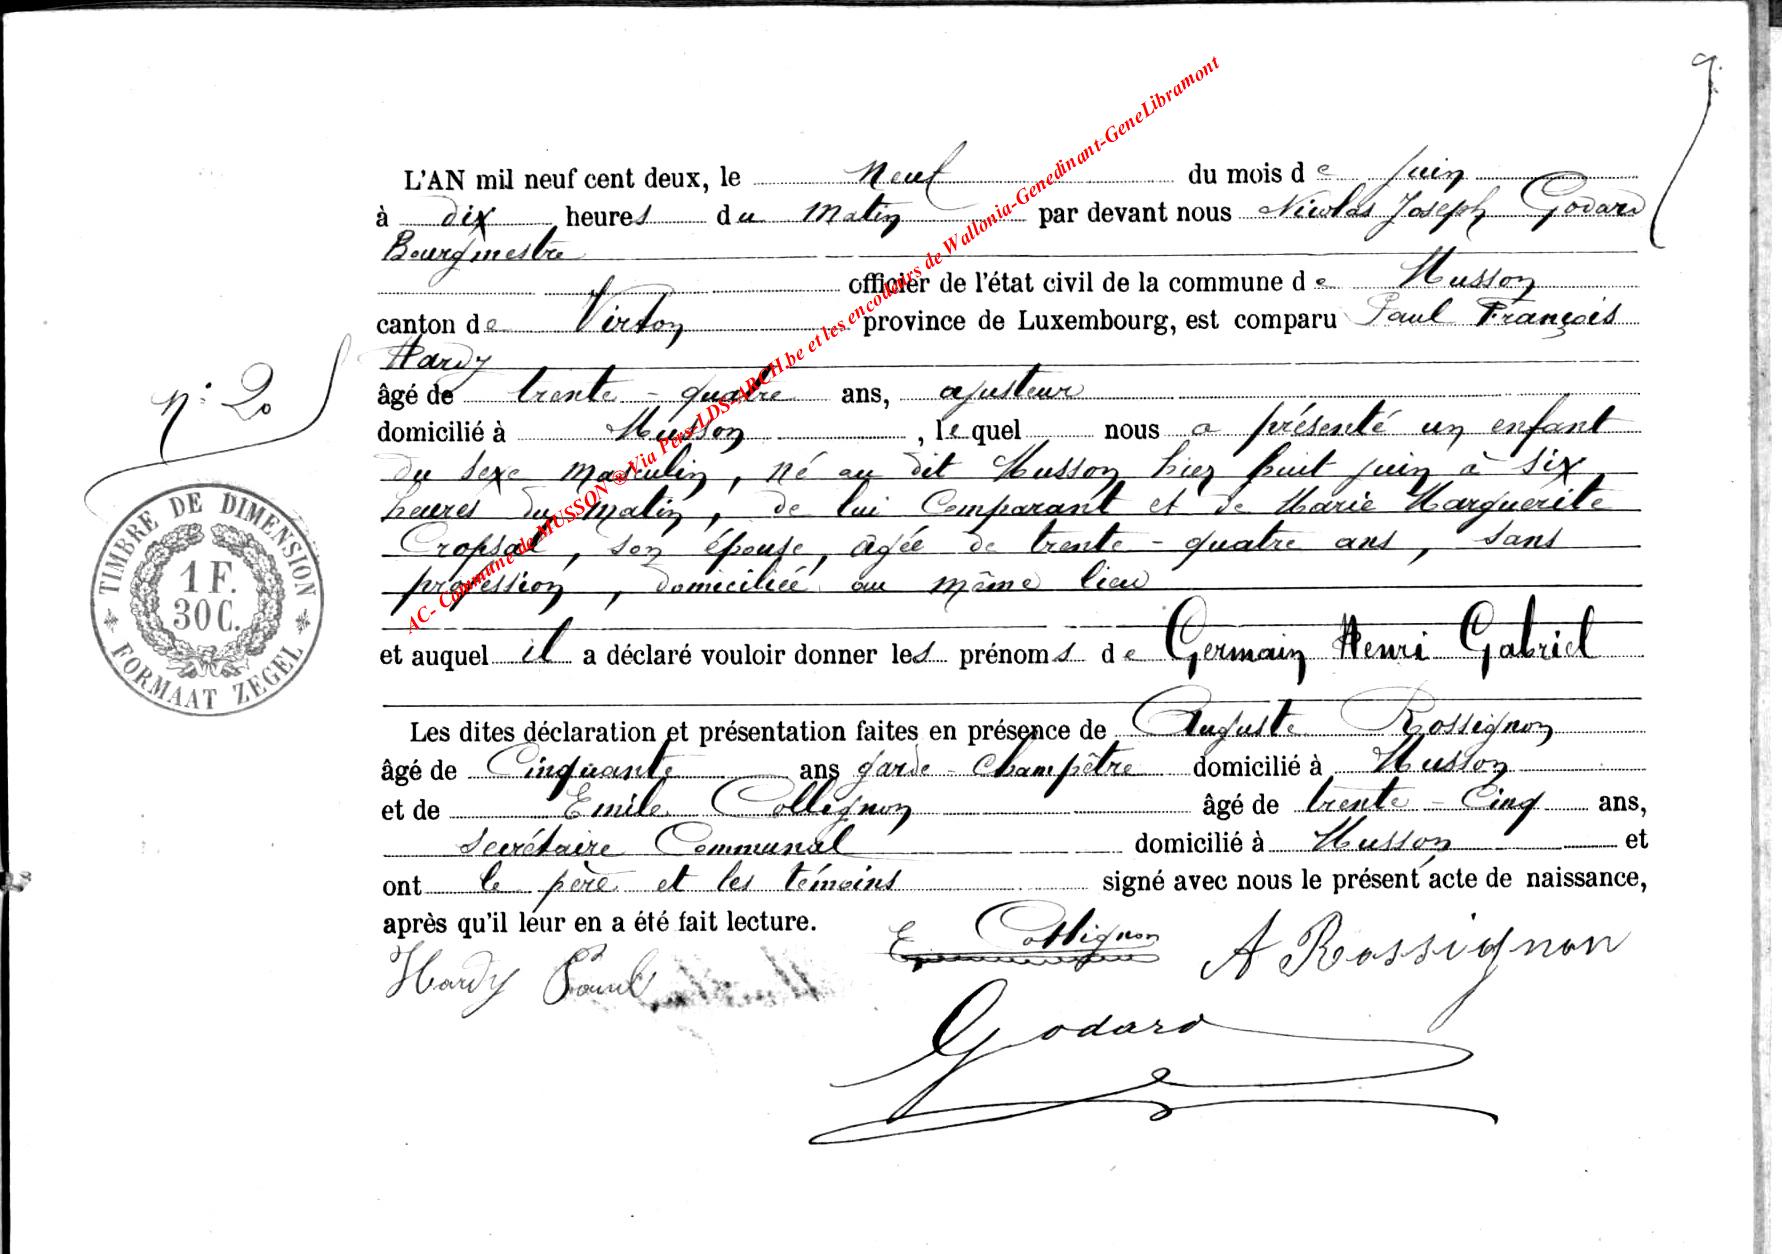 9.
L'AN mil neuf cent deux, le neuf du mois de juin
à dix heures du matin par devant nous Nicolas Joseph Godard
Bourgmestre
officier de l'état civil de la commune de Musson
canton de Virton province de Luxembourg, est comparu Paul François
Hardy
âgé de trente-quatre ans, ajusteur
domicilié à Musson, lequel nous a présenté un enfant
du sexe masculin, né au dit Musson hier huit juin à six
heures du matin, de lui Comparant et de Marie Marguerite
Cropsal, son épouse, âgée de trente-quatre ans, sans
profession, domiciliée au même lieu
et auquel il a déclaré vouloir donner les prénoms de Germain Henri Gabriel
Les dites déclaration et présentation faites en présence de Auguste Rossignon
âgé de Cinquante ans garde-Champêtre domicilié à Musson
et de Emile Collignon âgé de trente-Cinq ans,
Secrétaire Communal domicilié à Musson et
ont le père et les témoins signé avec nous le présent acte de naissance,
après qu'il leur en a été fait lecture.
Hardy Paul E Collignon A Rossignon
Godard
n: 20
TIMBRE DE DIMENSION
1 F.
30 C.
FORMAAT ZEGEL
AC- Commune de MUSSON ® Via Pers-LDS-ARCH.be et les encodeurs de Wallonia-Genedinant-GeneLibramont